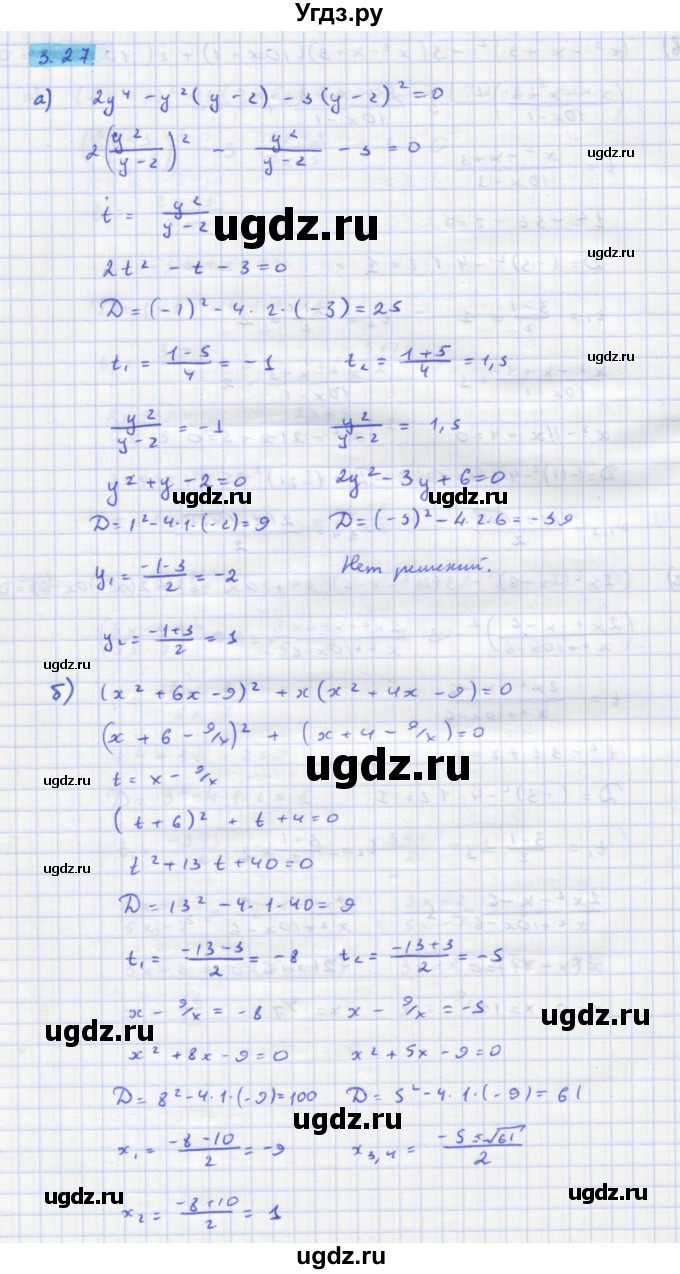 Угдз.ру
3.27
а) 2y⁴ - y²(y - 2) - 3(y - 2)² = 0
2(y²/(y-2))² - y²/(y-2) - 3 = 0
ugdz.ru
t = y²/(y-2)
ugdz.ru
ugdz.ru
2t² - t - 3 = 0
D = (-1)² - 4·2·(-3) = 25
t₁ = (1-5)/4 = -1 t₂ = (1+5)/4 = 1,5
ugdz.ru
y²/(y-2) = -1 y²/(y-2) = 1,5
y² + y - 2 = 0 2y² - 3y + 6 = 0
ugdz.ru ugdz.ru
D = 1² - 4·1·(-2) = 9 D = (-3)² - 4·2·6 = -39
y₁ = (-1-3)/2 = -2 Нет решений.
y₂ = (-1+3)/2 = 1
ugdz.ru
б) (x² + 6x - 9)² + x(x² + 4x - 9) = 0
(x + 6 - 9/x)² + (x + 4 - 9/x) = 0
ugdz.ru
t = x - 9/x
ugdz.ru
(t + 6)² + t + 4 = 0
t² + 13t + 40 = 0
ugdz.ru
D = 13² - 4·1·40 = 9
t₁ = (-13-3)/2 = -8 t₂ = (-13+3)/2 = -5
ugdz.ru
x - 9/x = -8 x - 9/x = -5
ugdz.ru ugdz.ru
x² + 8x - 9 = 0 x² + 5x - 9 = 0
D = 8² - 4·1·(-9) = 100 D = 5² - 4·1·(-9) = 61
ugdz.ru
x₁ = (-8-10)/2 = -9 x₃,₄ = (-5±√61)/2
ugdz.ru ugdz.ru
x₂ = (-8+10)/2 = 1
ugdz.ru